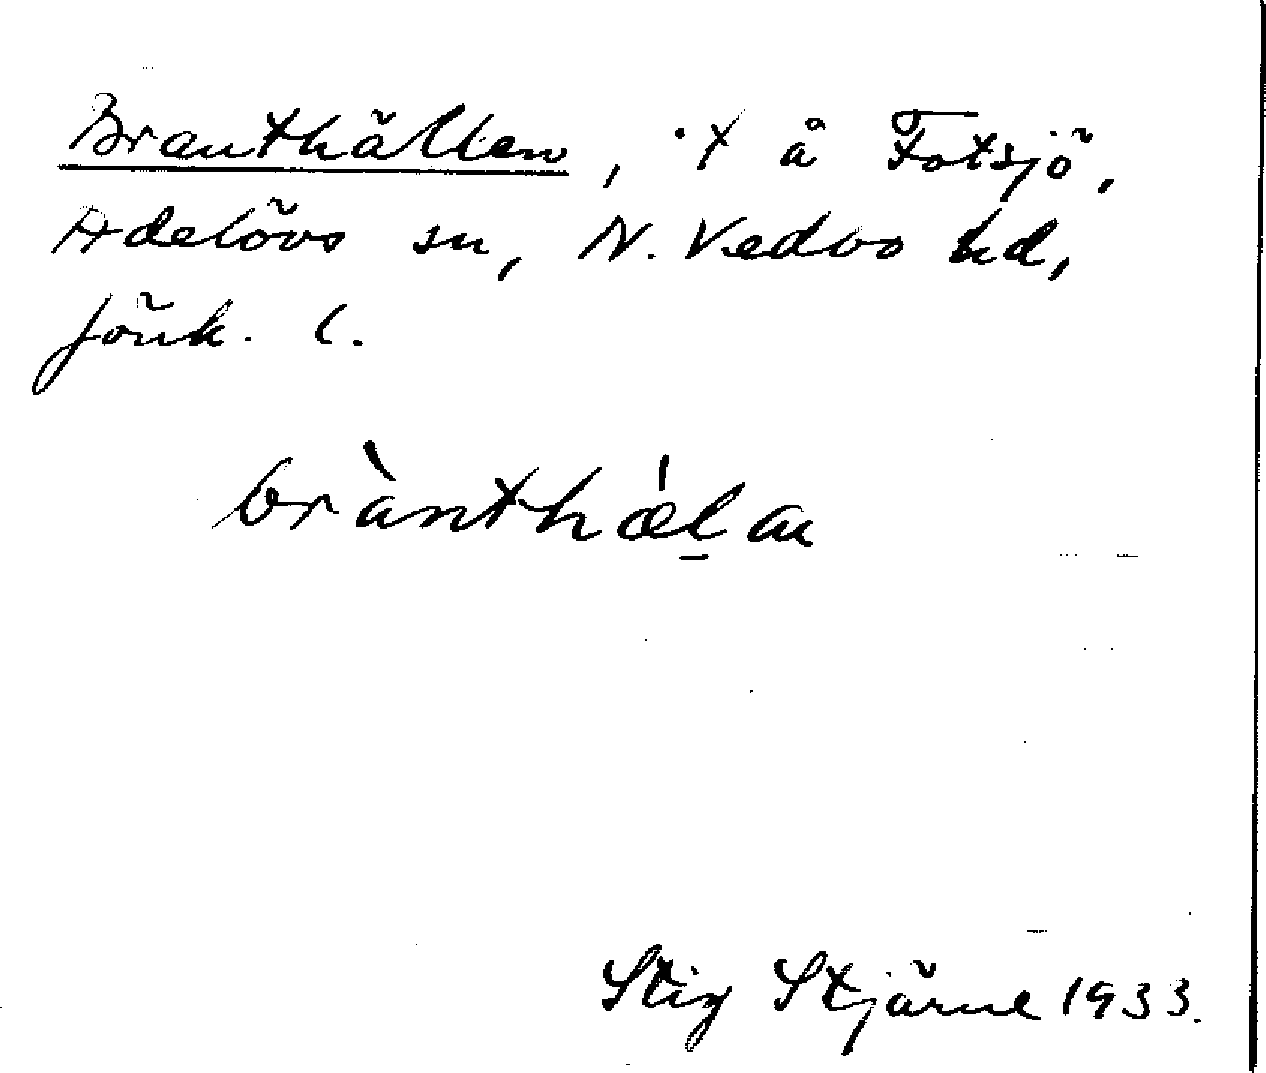 Branthällen, ·x å Fotsjö,
Adelövs sn, N. Vedbo hd,
Jönk. l.
brànthǽl̠ai
Stig Stjärne 1933.